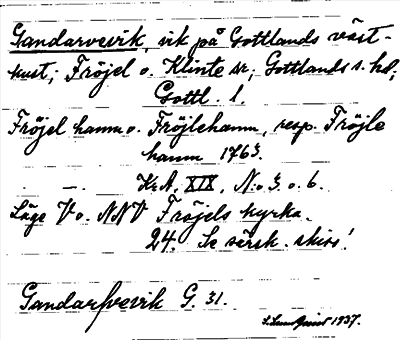 Gandarvevik, vik på Gottlands väst-
kust; Fröjel o. Klinte sr; Gottlands s. hd;
Gottl. l.
Fröjel hamn o. Fröjlehamn, resp. Fröjle
hamn 1763.
—. KrA, XIX, No. 3. o. 6.
Läge V o. NNV Fröjels kyrka.
24. Se särsk. skiss!
Gandarfvevik G. 31.
1937.